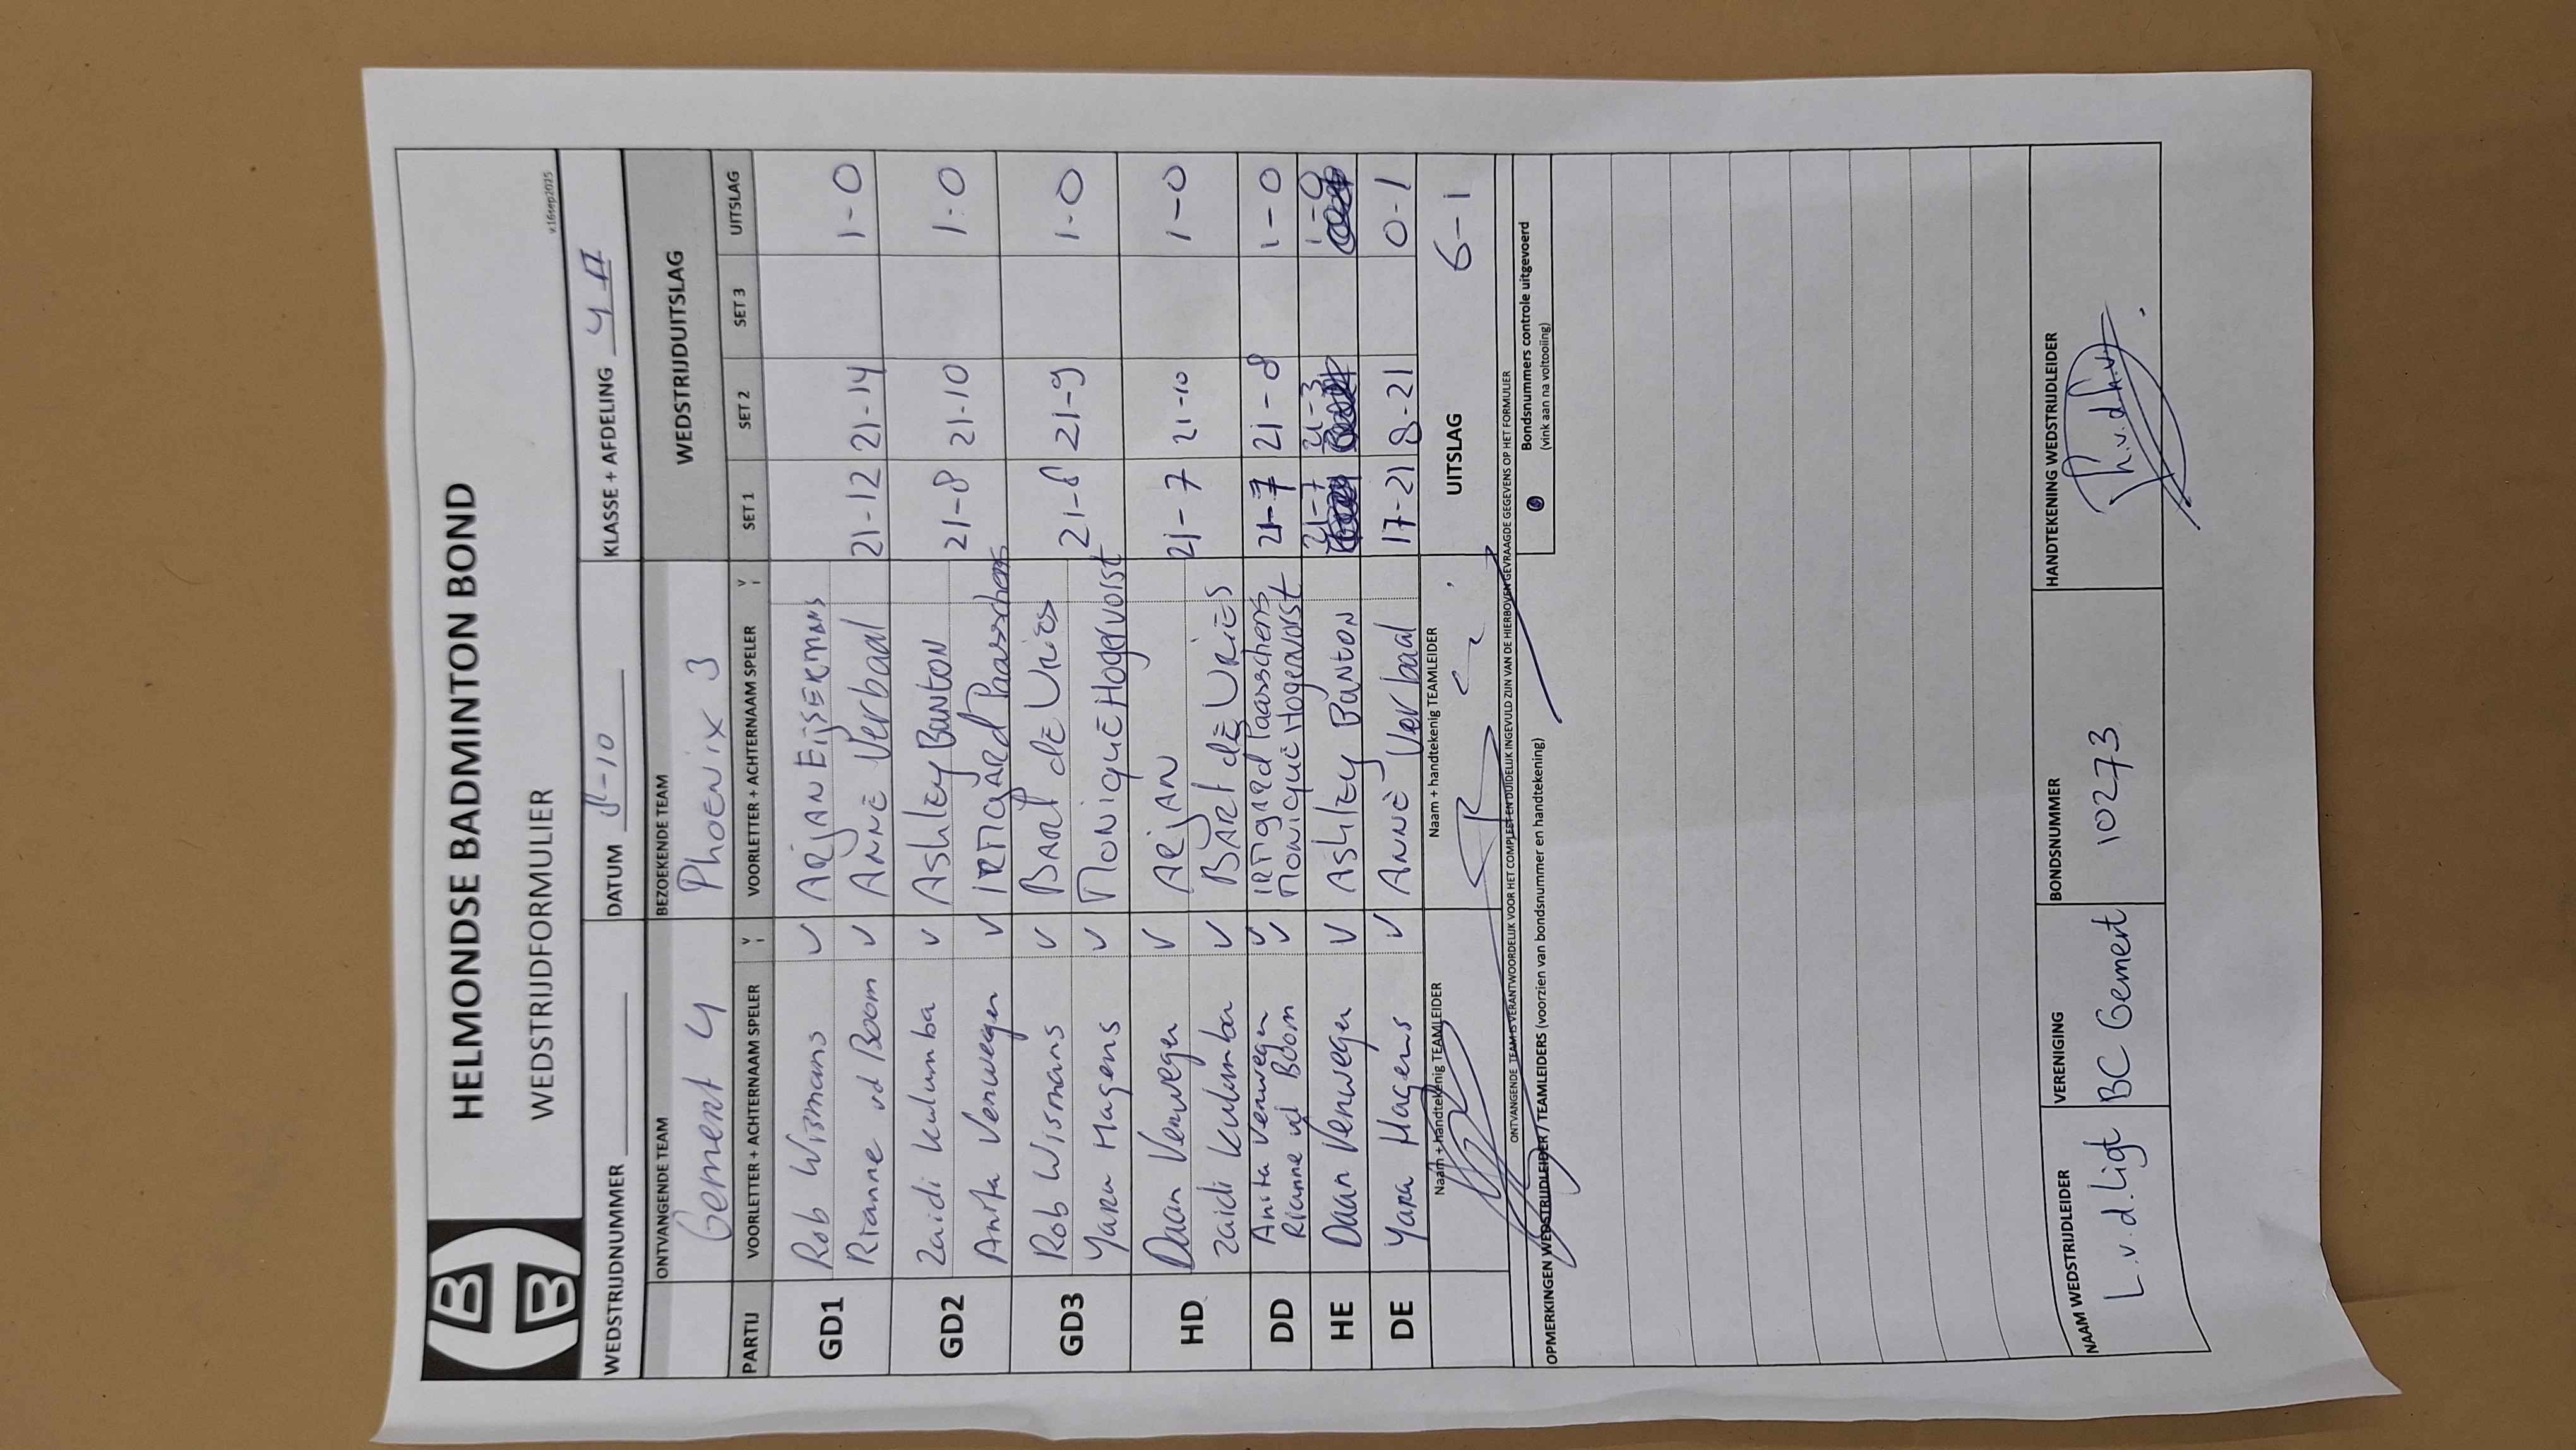 HELMONDSE BADMINTON BOND
WEDSTRIJDFORMULIER
v.16sep2025
WEDSTRIJDNUMMER DATUM 8-10 KLASSE + AFDELING 4
ONTVANGENDE TEAM BEZOEKENDE TEAM WEDSTRIJDUITSLAG
Gemert 4 Phoenix 3
PARTIJ VOORLETTER + ACHTERNAAM SPELER V VOORLETTER + ACHTERNAAM SPELER V SET 1 SET 2 SET 3 UITSLAG
GD1 Rob Wismans ✓ ARjAN EijSERMANS
Rianne vd Boom ✓ ANNE Verbaal 21-12 21-14 1-0
GD2 Zaidi Kulumba ✓ AshlEy BANTON 21-8 21-10 1-0
Anita Verwegen ✓ IRMGARd Paasschens
GD3 Rob Wismans ✓ BARt dE VRiEs 21-8 21-9 1-0
Yara Hagens ✓ MONiquE Hogervorst
HD Daan Verwegen ✓ ARjAN 21-7 21-10 1-0
Zaidi Kulumba ✓ BARt dE VRiEs
DD Anita Verwegen ✓ IRMgARd Paasschens 21-7 21-8 1-0
Rianne vd Boom ✓ MONiquE Hogervorst
HE Daan Verwegen ✓ AshlEy BANTON 21-7 21-3 1-0
DE Yara Hagens ✓ ANNE Verbaal 17-21 8-21 0-1
Naam + handtekenig TEAMLEIDER Naam + handtekenig TEAMLEIDER UITSLAG 6-1
ONTVANGENDE TEAM IS VERANTWOORDELIJK VOOR HET COMPLEET EN DUIDELIJK INGEVULD ZIJN VAN DE HIERBOVEN GEVRAAGDE GEGEVENS OP HET FORMULIER
OPMERKINGEN WEDSTRIJDLEIDER / TEAMLEIDERS (voorzien van bondsnummer en handtekening)
Bondsnummers controle uitgevoerd
(vink aan na voltooiing)
NAAM WEDSTRIJDLEIDER VERENIGING BONDSNUMMER HANDTEKENING WEDSTRIJDLEIDER
L.v.d.Ligt BC Gemert 10273